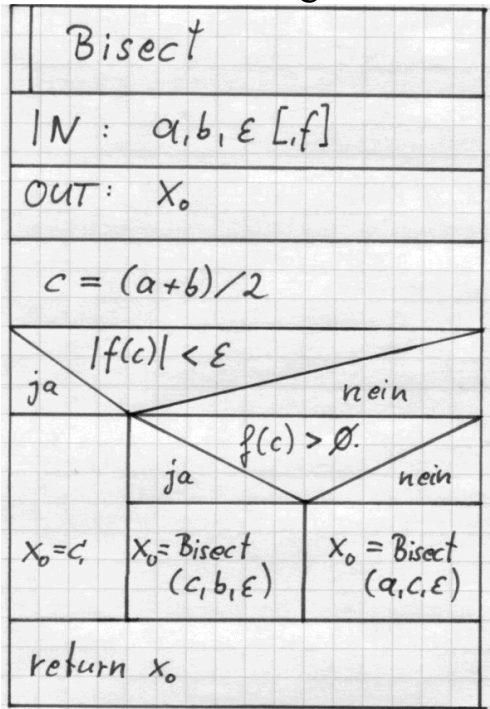 Bisect
IN: a, b, ε [,f]
OUT: X₀
c = (a+b)/2
|f(c)| < ε
ja
nein
f(c) > Ø.
ja
nein
X₀=c,
X₀=Bisect
(c,b,ε)
X₀ = Bisect
(a,c,ε)
return x₀